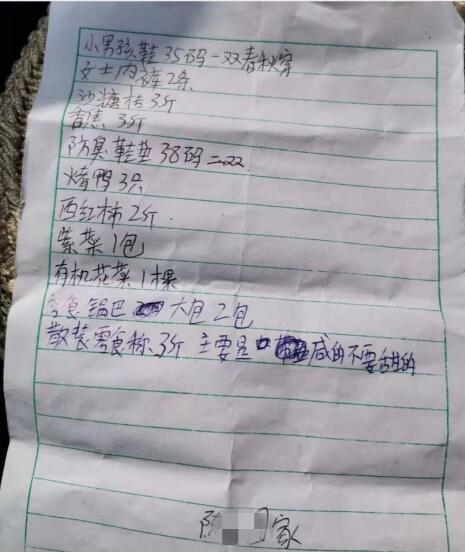 小男孩鞋35码一双春秋穿
女士内裤2条
沙糖桔3斤
香蕉3斤
防臭鞋垫38码二双
烤鸭3只
西红柿2斤.
紫菜1包
有机花菜1棵
零食锅巴 大包2包
散装零食称3斤 主要是 咸的不要甜的
陈 家